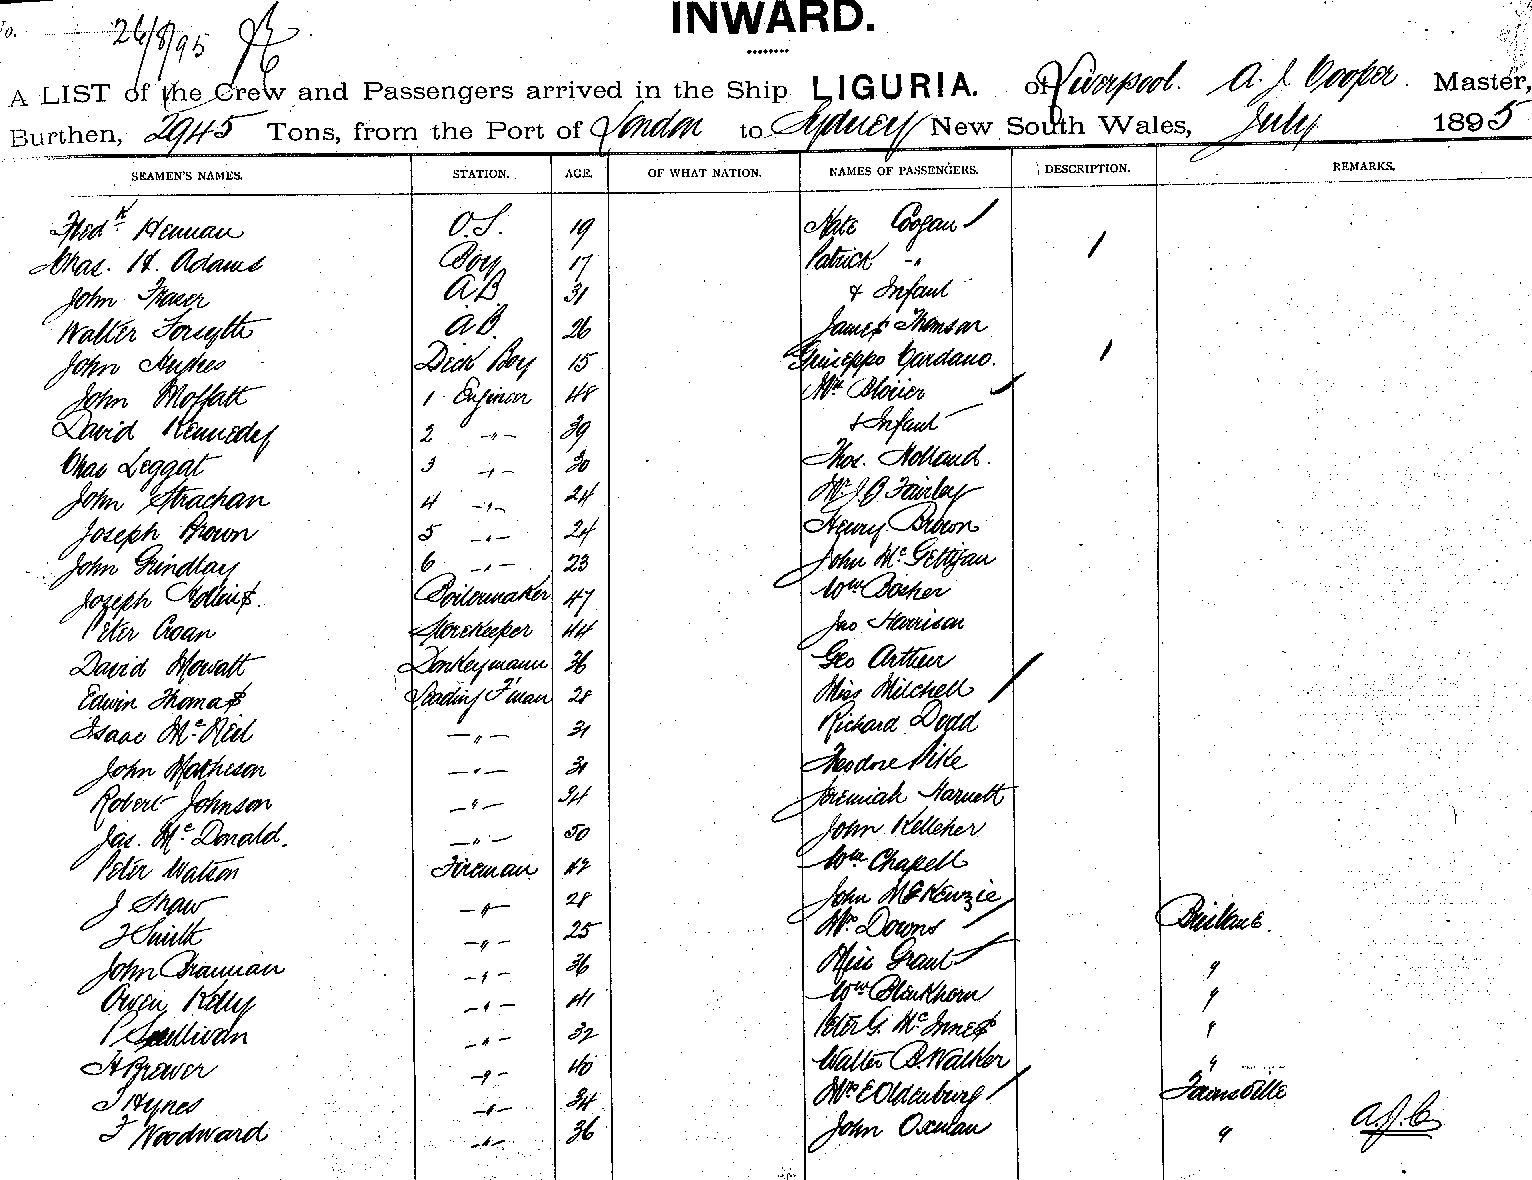 INWARD.
26/8/95
A LIST of the Crew and Passengers arrived in the Ship LIGURIA. of Liverpool. A. J. Cooper. Master,
Burthen, 2945 Tons, from the Port of London to Sydney New South Wales, July 1895
SEAMEN'S NAMES. STATION. AGE. OF WHAT NATION. NAMES OF PASSENGERS. DESCRIPTION. REMARKS.
Fredk. O.S. 19 Kate Coogan
Chas. H. Adams Boy 17 Patrick -"-
John Fraser A.B 31 & Infant
Walter Forsyth A.B. 26 James Thomson
John Deck Boy 15 Giuseppo Cardano.
John Moffatt 1 Engineer 48
David Kennedy 2 -"- 39 & Infant
Chas Leggat 3 -"- 30 Thos. Holland.
John Strachan 4 -"- 24 Mr J B Fairley
Joseph Brown 5 -"- 24 Henry Brown
John Grindlay 6 -"- 23 John McGettigan
Joseph Boilermaker 47 Wm Bosher
Peter Croan Storekeeper 44 Jno Harrison
David Mowatt Donkeymann 36 Geo Arthur
Edwin Thomas Leading F'man 28 Miss Mitchell
Isaac -"- 31 Richard Dodd
John Matheson -"- 31 Theodore Pike
Robert Johnson -"- 34 Jeremiah Harnett
Jas. McDonald. -"- 50 John Kelleher
Peter Watson Fireman 42 Wm Chapell
J Shaw -"- 28 John McKenzie
Smith -"- 25 Downs Brisbane.
John Brannan -"- 36 Miss Grant "
Owen Kelly -"- 41 Wm Blenkhorn "
P Sullivan -"- 32 Peter G. McInnes "
H Brewer -"- 40 Walter B. Walker "
Hynes -"- 34 E Oldenburg Townsville
F Woodward -"- 36 John Oxman "
A.J.C.